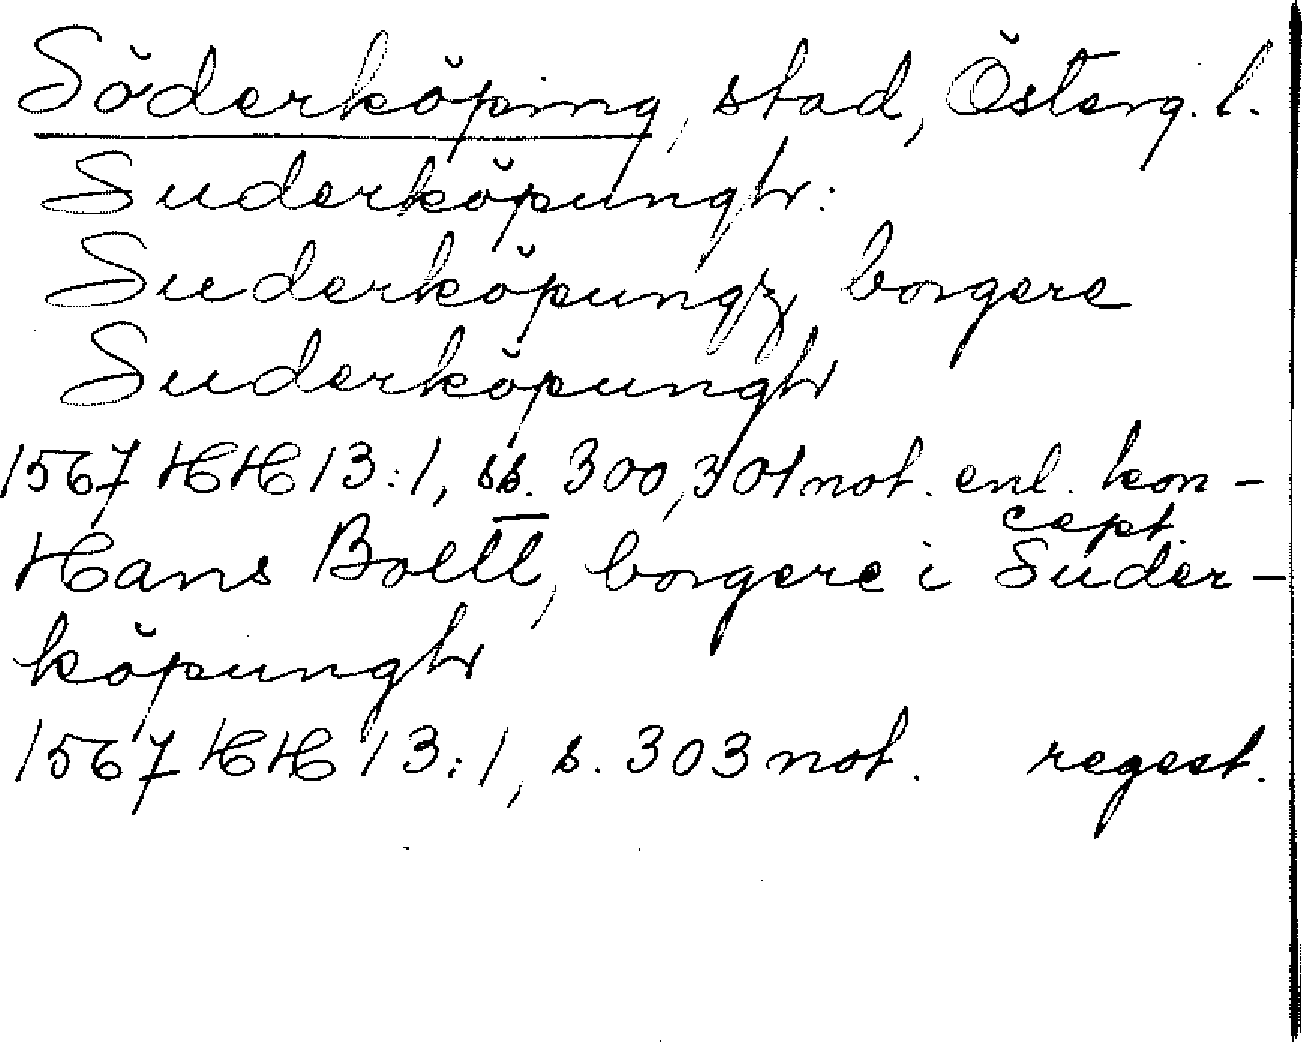 Söderköping, stad, Österg. l.
Suderköpungh:
Suderköpungz borgere
Suderköpungh
1567 HH 13:1, ss. 300, 301 not. enl. kon-
cept.
Hans Boltt, borgere i Suder-
köpungh
1567 HH 13:1, s. 303 not. regest.